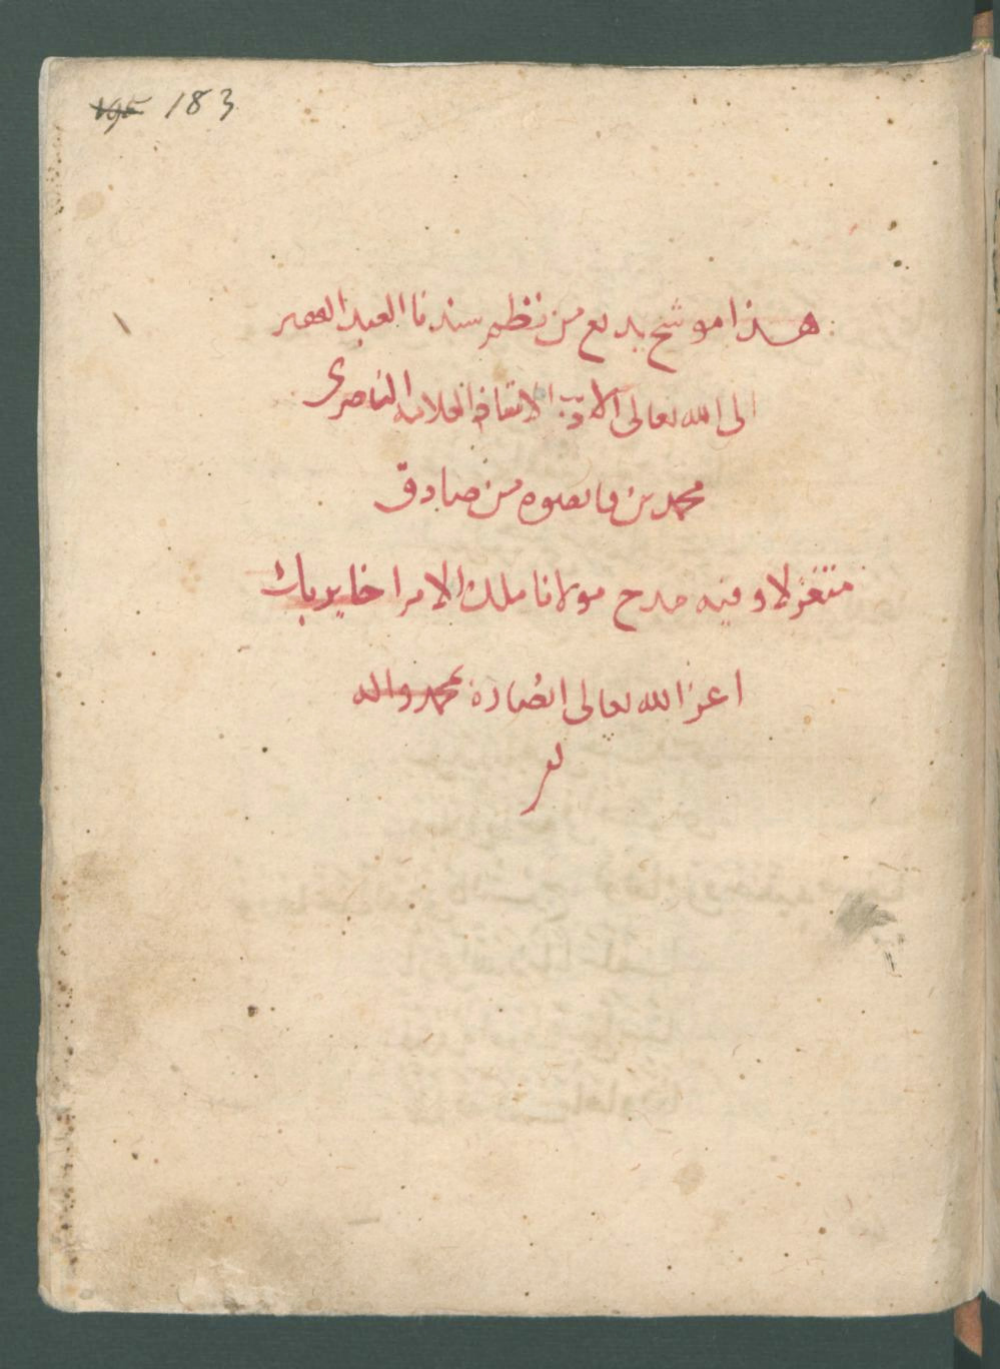 183
هذا موشح بديع من نظم سيدنا العبد الفقير
الى الله تعالى الاديب الاستاذ العلامه الناصرى
محمد بن قانصوه من صادق
متغزلا وفيه مدح مولانا ملك الامرا خاير بك
اعز الله تعالى انصاره بمحمد واله